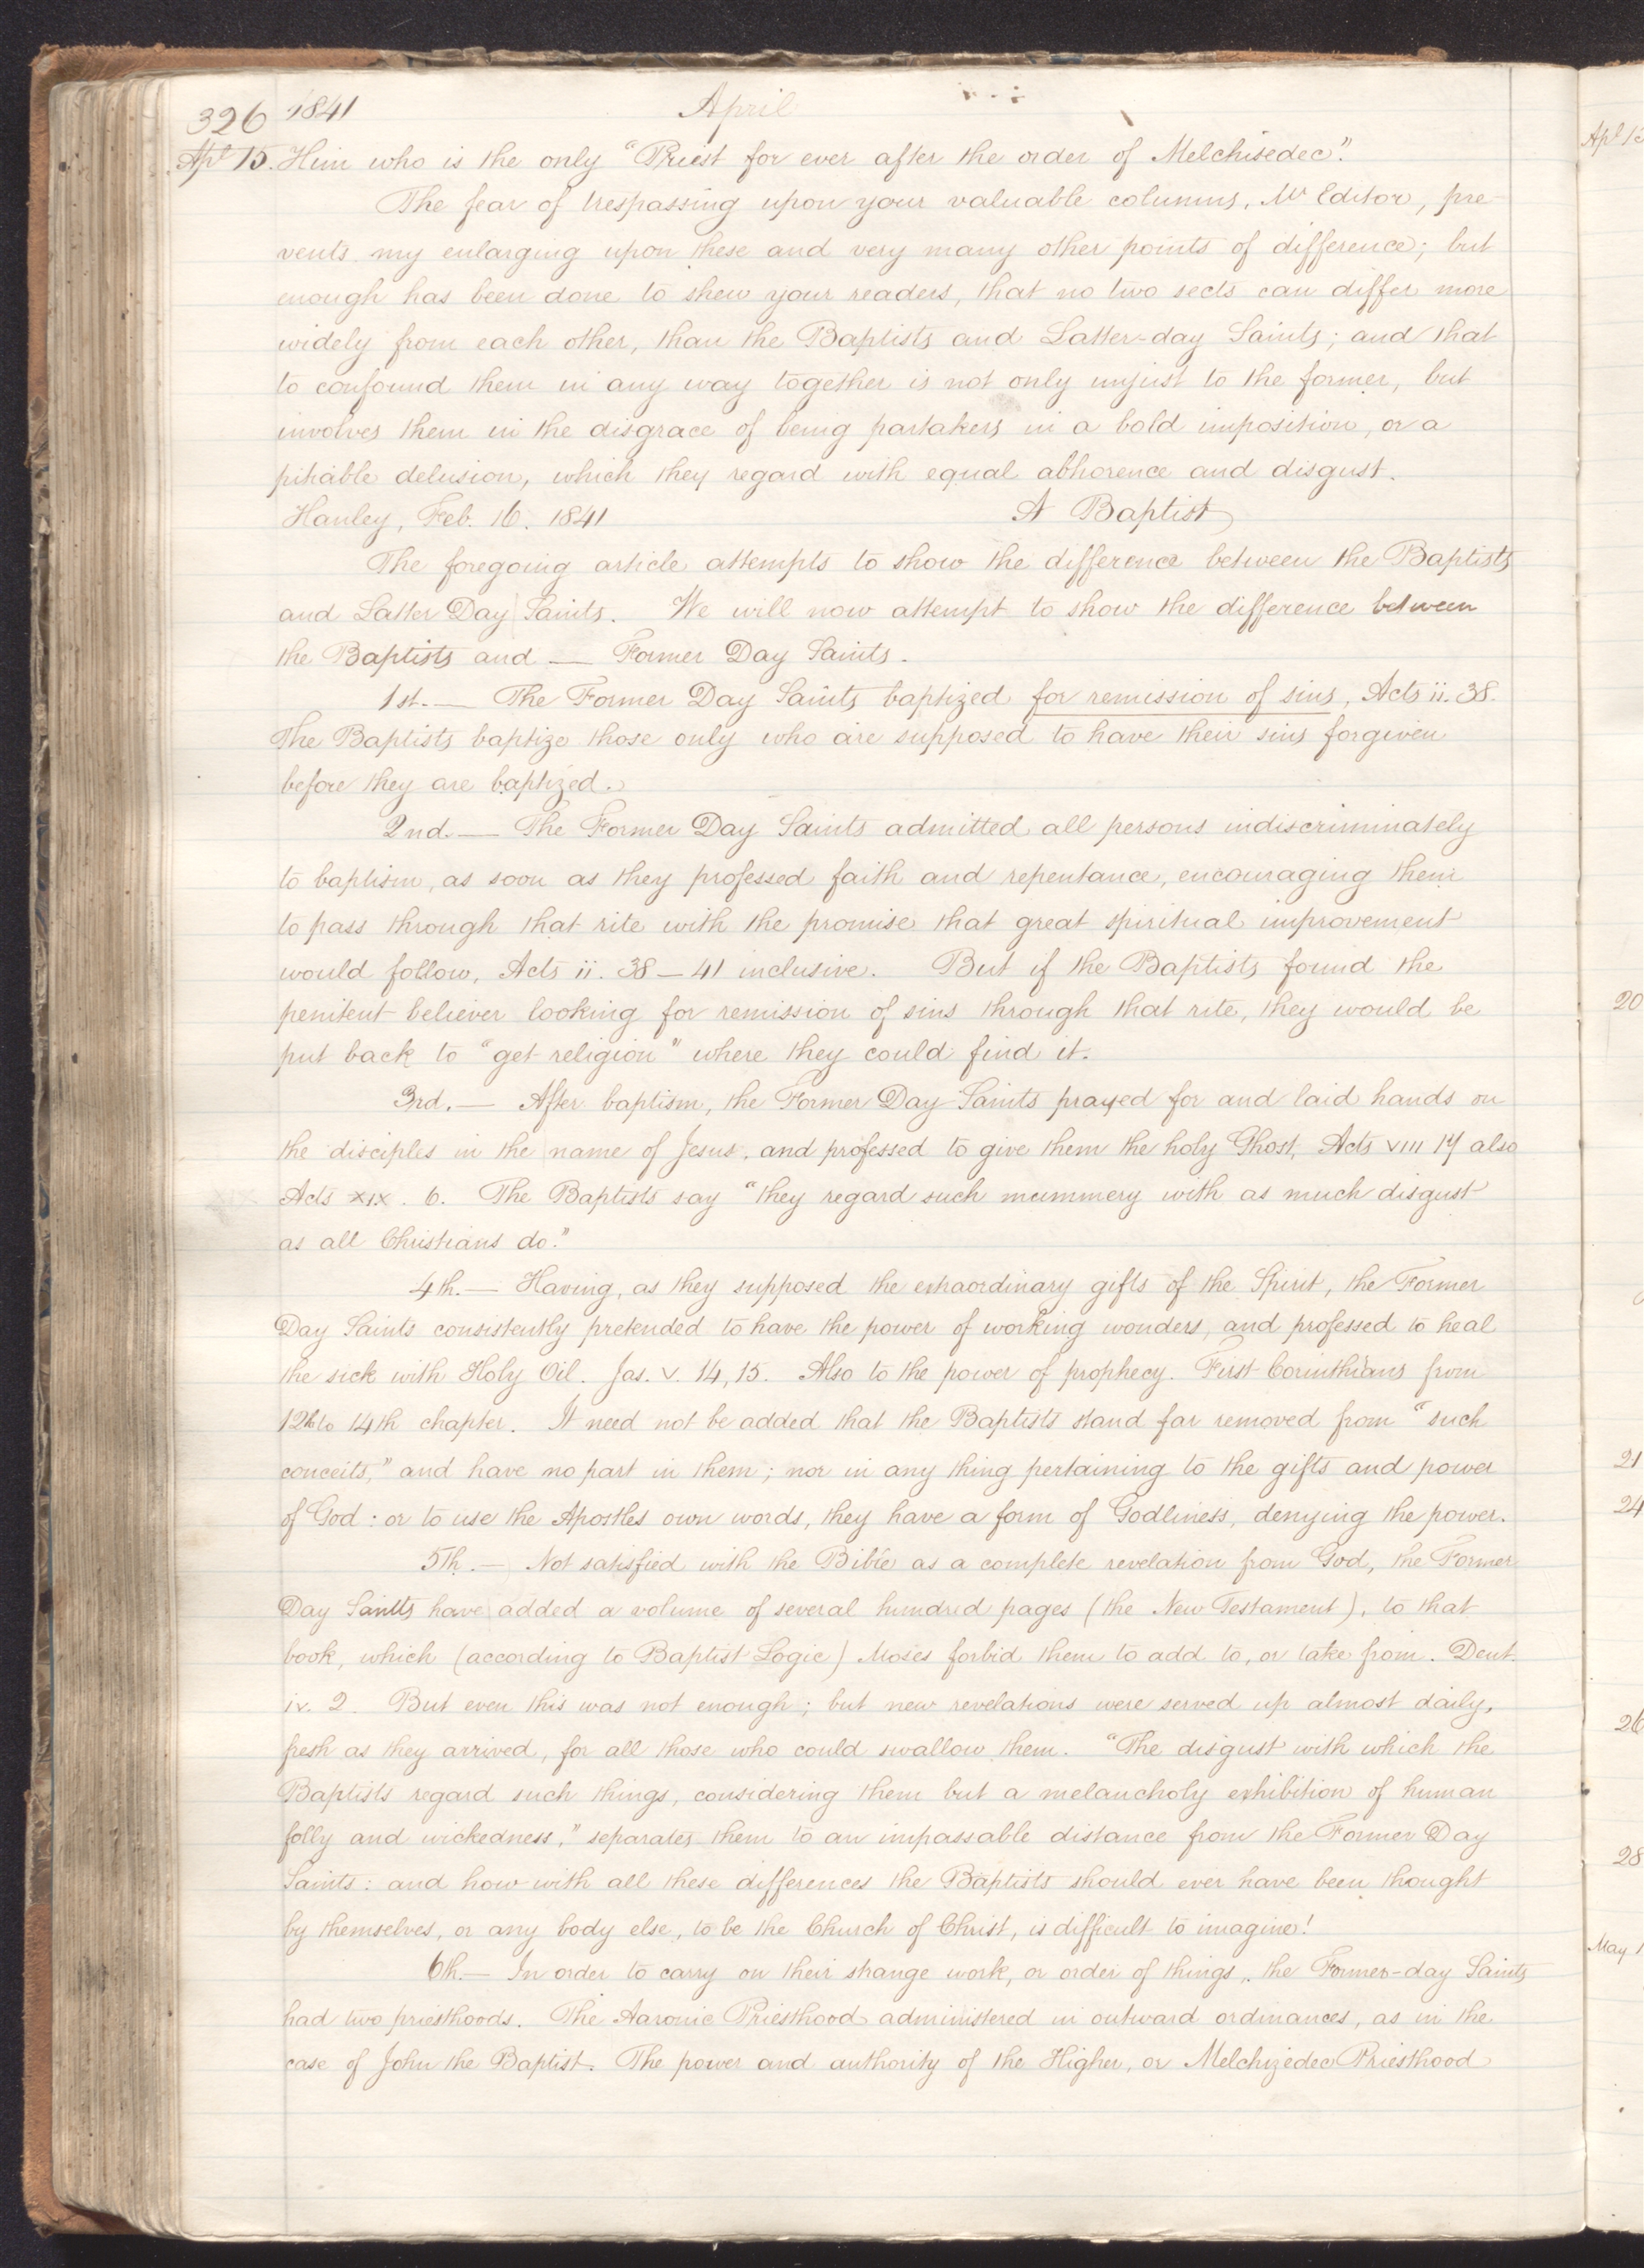 326 1841 April
Apl 15. Him who is the only "Priest for ever after the order of Melchisedec".
The fear of trespassing upon your valuable columns, Mr Editor, pre-
vents my enlarging upon these and very many other points of difference; but
enough has been done to shew your readers, that no two sects can differ more
widely from each other, than the Baptists and Latter-day Saints; and that
to confound them in any way together is not only unjust to the former, but
involves them in the disgrace of being partakers in a bold imposition, or a
pitiable delusion, which they regard with equal abhorence and disgust.
Hanley, Feb. 16. 1841 A Baptist
The foregoing article attempts to show the difference between the Baptists
and Latter Day Saints. We will now attempt to show the difference between
the Baptists and — Former Day Saints.
1st. — The Former Day Saints baptized for remission of sins, Acts ii. 38.
The Baptists baptize those only who are supposed to have their sins forgiven
before they are baptized.
2nd. — The Former Day Saints admitted all persons indiscriminately
to baptism, as soon as they professed faith and repentance, encouraging them
to pass through that rite with the promise that great spiritual improvement
would follow, Acts ii. 38 — 41 inclusive. But if the Baptists found the
penitent believer looking for remission of sins through that rite, they would be
put back to "get religion" where they could find it.
3rd. — After baptism, the Former Day Saints prayed for and laid hands on
the disciples in the name of Jesus, and professed to give them the holy Ghost, Acts VIII 17 also
Acts XIX. 6. The Baptists say "they regard such mummery with as much disgust
as all Christians do."
4th. — Having, as they supposed the extraordinary gifts of the Spirit, the Former
Day Saints consistently pretended to have the power of working wonders, and professed to heal
the sick with Holy Oil. Jas. V. 14, 15. Also to the power of prophecy. First Corinthians from
12th to 14th chapter. It need not be added that the Baptists stand far removed from "such
conceits," and have no part in them; nor in any thing pertaining to the gifts and power
of God: or to use the Apostles own words, they have a form of Godliness, denying the power.
5th. — Not satisfied with the Bible as a complete revelation from God, the Former
Day Saints have added a volume of several hundred pages (the New Testament), to that
book, which (according to Baptist Logic) Moses forbid them to add to, or take from. Deut.
iv. 2. But even this was not enough; but new revelations were served up almost daily,
fresh as they arrived, for all those who could swallow them. "The disgust with which the
Baptists regard such things, considering them but a melancholy exhibition of human
folly and wickedness," separates them to an impassable distance from the Former Day
Saints: and how with all these differences the Baptists should ever have been thought
by themselves, or any body else, to be the Church of Christ, is difficult to imagine!
6th. — In order to carry on their strange work, or order of things, the Former-day Saints
had two priesthoods. The Aaronic Priesthood administered in outward ordinances, as in the
case of John the Baptist. The power and authority of the Higher, or Melchizedec Priesthood
20
21
24
26
28
May 1